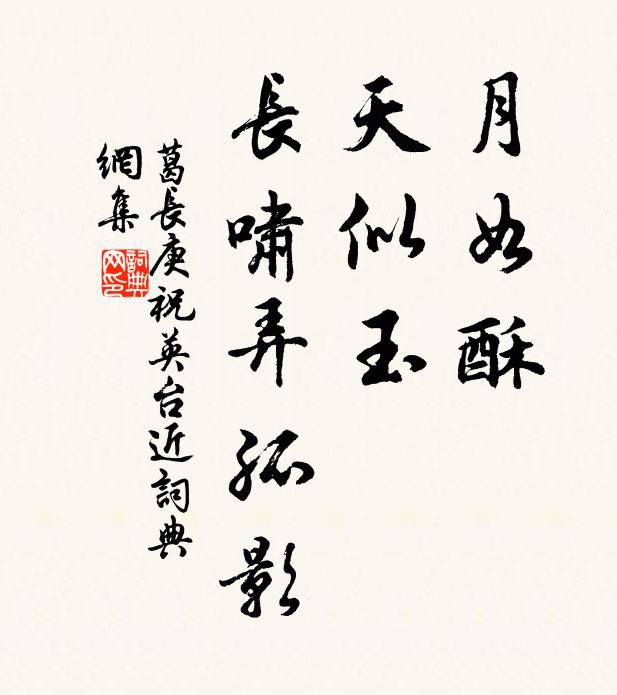 月如酥
天似玉
長嘯弄孤影
葛長庚祝英台近詞典
網集
詞典
网印